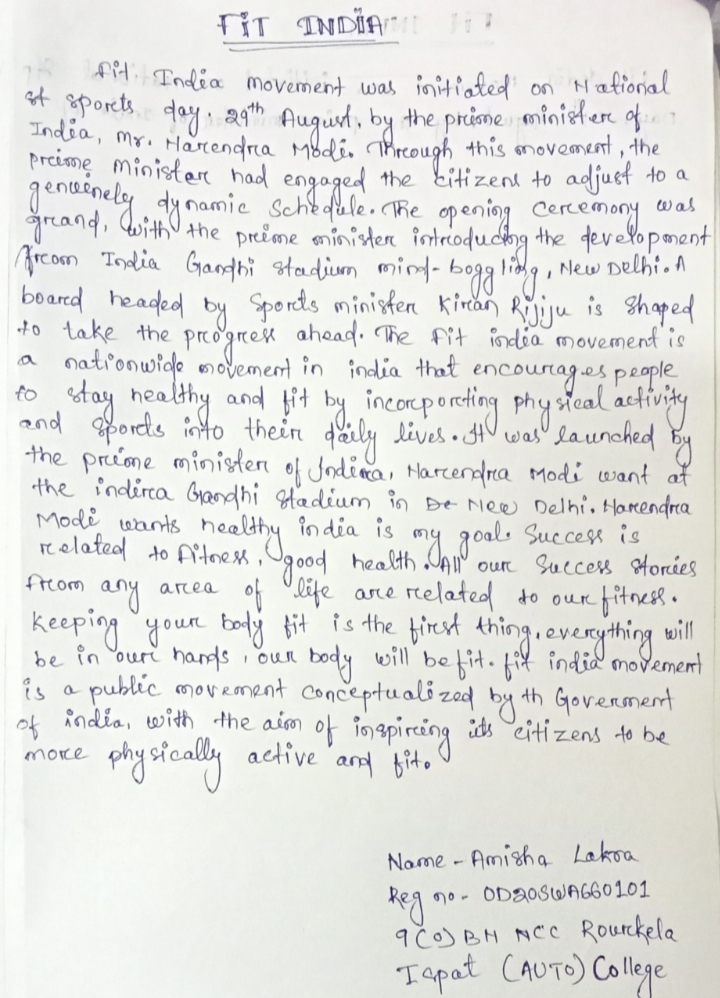 FIT INDIA
Fit India movement was initiated on National
st sports day. 29th August, by the prime minister of
India, Mr. Narendra Modi. Through this movement, the
prime minister had engaged the citizens to adjust to a
genuinely dynamic schedule. The opening ceremony was
grand, with the prime minister introducing the development
from India Gandhi stadium mind-boggling, New Delhi. A
board headed by Sports minister Kiran Rijiju is shaped
to take the progress ahead. The fit india movement is
a nationwide movement in india that encourages people
to stay healthy and fit by incorporating physical activity
and sports into their daily lives. It was launched by
the prime minister of Indira, Narendra Modi want at
the indira Gandhi stadium in De New Delhi. Narendra
Modi wants healthy india is my goal. Success is
related to fitness, good health. All our success stories
from any area of life are related to our fitness.
Keeping your body fit is the first thing, everything will
be in our hands, our body will be fit. fit india movement
is a public movement conceptualized by th Goverment
of india, with the aim of inspiring its citizens to be
more physically active and fit.
Name - Amisha Lakra
Reg no - OD20SWA660101
9(O) BN NCC Rourkela
Ispat (AUTO) College